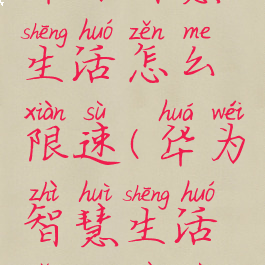 shēng huó zěn me
生活怎么
xiàn sù huá wéi
限速(华为
zhì huì shēng huó
智慧生活